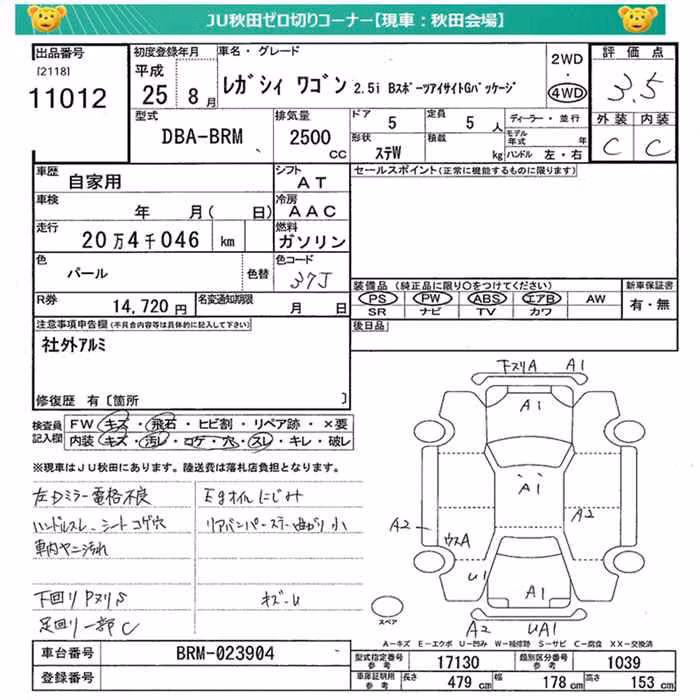 JU秋田ゼロ切りコーナー【現車：秋田会場】
出品番号 初度登録年月 車名・グレード 2WD 評価点
[2118] 平成
11012 25年 8月 レガシィ ワゴン 2.5i BスポーツアイサイトGパッケージ ・ 4WD 3.5
型式 排気量 ドア 定員 ディーラー・並行 外装 内装
DBA-BRM 2500 CC 5 5人 モデル年式 年 C C
形状 積載
ステW kg ハンドル 左・右
車歴 シフト セールスポイント(正常に機能するものに限ります)
自家用 AT
車検 冷房
年 月( 日) AAC
走行 燃料
20万4千046 km ガソリン
色 色コード
パール 色替 37J
装備品 (純正品に限り○をつけてください) 新車保証書
R券 名変通知期限 PS PW ABS エアB AW 有・無
14,720円 月 日 SR ナビ TV カワ
注意事項申告欄(不具合内容等は具体的に記入して下さい) 後日品
社外アルミ
修復歴 有[箇所 ]
検査員記入欄
FW キズ・飛石・ヒビ割・リペア跡・×要
内装 キズ・汚レ・コゲ・穴・スレ・キレ・破レ
※現車はJU秋田にあります。陸送費は落札店負担となります。
左Dミラー電格不良 Egオイルにじみ
ハンドルスレ、シートコゲ穴 リアバンパーステー曲がり小
車内ヤニ汚れ
下回りPヌリS キズ-U
足回り一部C
下ヌリA A1
A1
A1
A2 A2
ウスA
U1
A1
A2 UA1
スペア
A－キズ E－エクボ U－凹み W－補修跡 S－サビ C－腐食 XX－交換済
車台番号 BRM-023904 型式指定番号 参考 17130 類別区分番号 参考 1039
登録番号 車庫証明用 参考 長さ 479 cm 幅 178 cm 高さ 153 cm